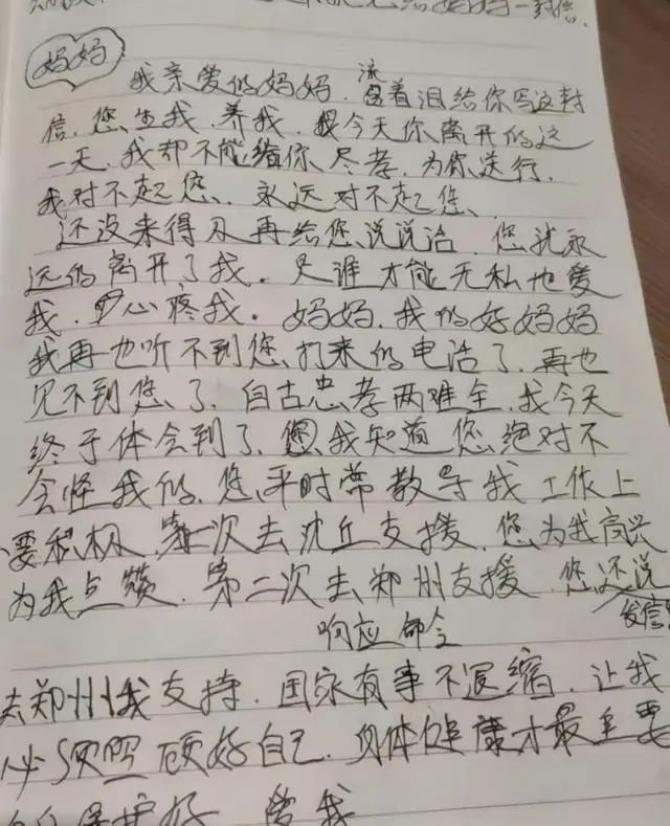 一封信.
妈妈
我亲爱的妈妈. 流着泪给你写这封
信. 您生我. 养我. 今天你离开的这
一天. 我却不能给你尽孝. 为你送行.
我对不起您. 永远对不起您.
还没来得及再给您说说话. 您就永
远的离开了我. 是谁才能无私地爱
我. 心疼我. 妈妈. 我的好妈妈
我再也听不到您打来的电话了. 再也
见不到您了. 自古忠孝两难全. 我今天
终于体会到了. 我知道您绝对不
会怪我的. 您平时常教导我工作上
要积极. 第一次去沈丘支援. 您为我高兴
为我点赞. 第二次去郑州支援. 您还说
发信
响应命令
去郑州我支持. 国家有事不退缩. 让我
必须照顾好自己. 身体健康才最重要
保护好